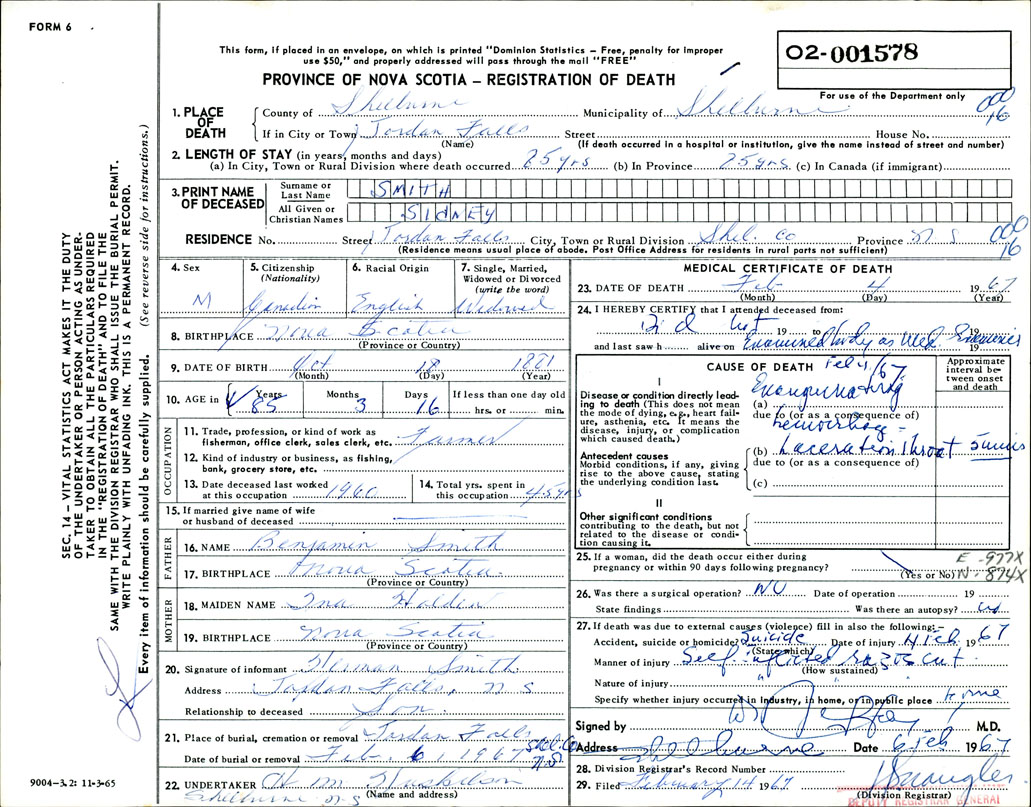 FORM 6
This form, if placed in an envelope, on which is printed "Dominion Statistics – Free, penalty for improper
use $50," and properly addressed will pass through the mail "FREE"
O2-001578
PROVINCE OF NOVA SCOTIA – REGISTRATION OF DEATH
For use of the Department only
000
16
1. PLACE OF DEATH County of Shelburne Municipality of Shelburne
If in City or Town Jordan Falls Street House No.
(Name) (If death occurred in a hospital or institution, give the name instead of street and number)
2. LENGTH OF STAY (in years, months and days)
(a) In City, Town or Rural Division where death occurred 25 yrs (b) In Province 25 yrs (c) In Canada (if immigrant)
3. PRINT NAME OF DECEASED Surname or Last Name SMITH
All Given or Christian Names SIDNEY
000
16
RESIDENCE No. Street Jordan Falls City, Town or Rural Division Shel. Co Province N S
(Residence means usual place of abode. Post Office Address for residents in rural parts not sufficient)
4. Sex M
5. Citizenship (Nationality) Canadian
6. Racial Origin English
7. Single, Married, Widowed or Divorced (write the word) Widowed
8. BIRTHPLACE Nova Scotia
(Province or Country)
9. DATE OF BIRTH Oct 18 1881
(Month) (Day) (Year)
10. AGE in Years 85 Months 3 Days 16 If less than one day old
hrs. or min.
OCCUPATION
11. Trade, profession, or kind of work as
fisherman, office clerk, sales clerk, etc. Farmer
12. Kind of industry or business, as fishing,
bank, grocery store, etc.
13. Date deceased last worked
at this occupation 1960
14. Total yrs. spent in
this occupation 45 yrs
15. If married give name of wife
or husband of deceased
FATHER
16. NAME Benjamin Smith
17. BIRTHPLACE Nova Scotia
(Province or Country)
MOTHER
18. MAIDEN NAME Ina Holden
19. BIRTHPLACE Nova Scotia
(Province or Country)
20. Signature of informant Herman Smith
Address Jordan Falls, N S
Relationship to deceased Son
21. Place of burial, cremation or removal Jordan Falls
Shel. Co
N.S.
Date of burial or removal Feb. 6, 1967
22. UNDERTAKER H M Huskilson
Shelburne N S (Name and address)
MEDICAL CERTIFICATE OF DEATH
23. DATE OF DEATH Feb 4 1967
(Month) (Day) (Year)
24. I HEREBY CERTIFY that I attended deceased from:
Did not 19 to 19
and last saw h alive on Examined body as Med. Examiner 19
Feb 4/67
CAUSE OF DEATH
Approximate
interval be-
tween onset
and death
I
Disease or condition directly lead-
ing to death (This does not mean
the mode of dying, e.g., heart fail-
ure, asthenia, etc. It means the
disease, injury, or complication
which caused death.)
(a) Exanguinating
due to (or as a consequence of)
hemorrhage -
Antecedent causes
Morbid conditions, if any, giving
rise to the above cause, stating
the underlying condition last.
(b) Laceration throat 5 mins
due to (or as a consequence of)
(c)
II
Other significant conditions
contributing to the death, but not
related to the disease or condi-
tion causing it.
25. If a woman, did the death occur either during
pregnancy or within 90 days following pregnancy?
(Yes or No)
E - 977X
N - 874X
26. Was there a surgical operation? NO Date of operation 19
State findings Was there an autopsy? no
27. If death was due to external causes (violence) fill in also the following:-
Accident, suicide or homicide? Suicide Date of injury 4 Feb 1967
(State which)
Manner of injury Self-inflicted razor cut.
(How sustained)
Nature of injury " " "
Specify whether injury occurred in industry, in home, or in public place Home
Signed by M.D.
Address Shelburne Date 6 Feb 1967
28. Division Registrar's Record Number
29. Filed February 14 1967
(Division Registrar)
DEPUTY REGISTRAR GENERAL
SEC. 14 – VITAL STATISTICS ACT MAKES IT THE DUTY
OF THE UNDERTAKER OR PERSON ACTING AS UNDER-
TAKER TO OBTAIN ALL THE PARTICULARS REQUIRED
IN THE "REGISTRATION OF DEATH" AND TO FILE THE
SAME WITH THE DIVISION REGISTRAR WHO SHALL ISSUE THE BURIAL PERMIT.
WRITE PLAINLY WITH UNFADING INK. THIS IS A PERMANENT RECORD.
Every item of information should be carefully supplied. (See reverse side for instructions.)
9004-3.2: 11-3-65